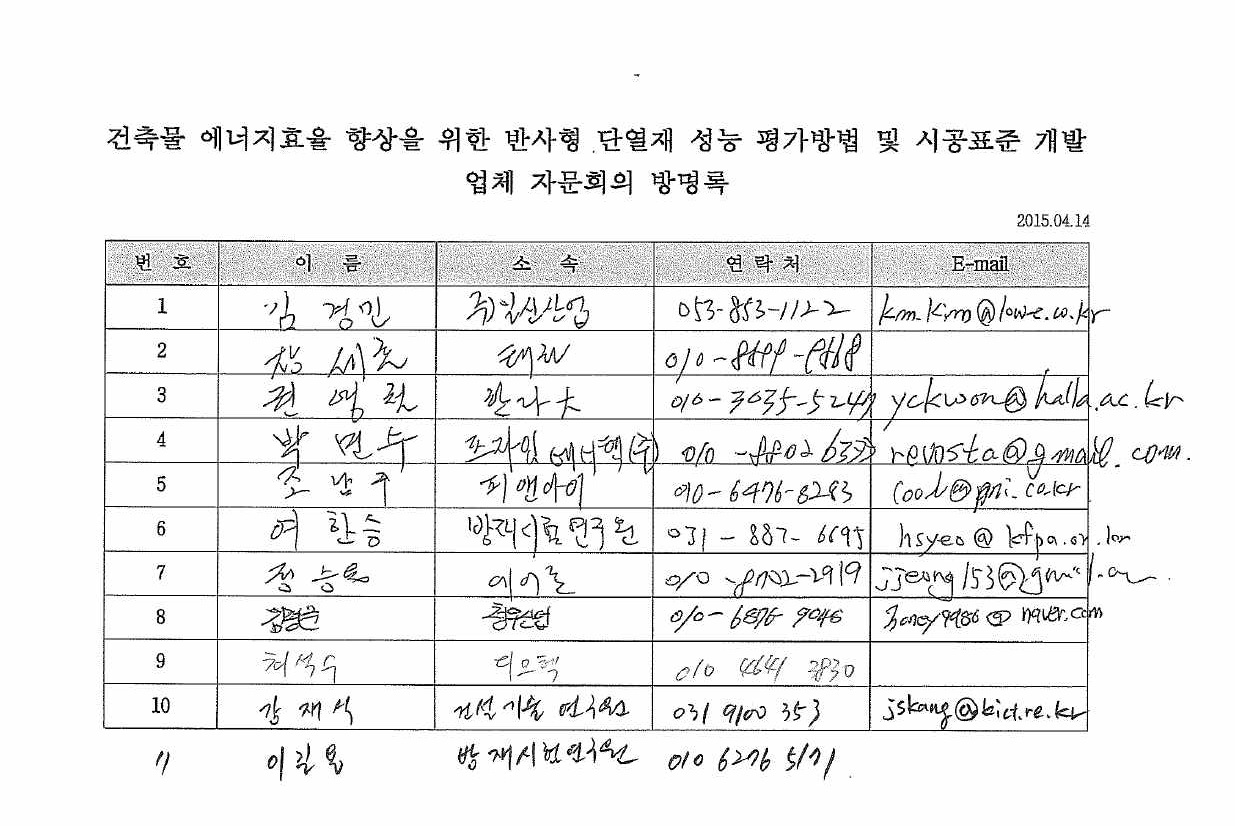 건축물 에너지효율 향상을 위한 반사형 단열재 성능 평가방법 및 시공표준 개발
업체 자문회의 방명록
2015.04.14
번 호 이 름 소 속 연 락 처 E-mail
1 김 경민 주)일신산업 053-853-1122 km.kim@lowe.co.kr
2 세준
3 권 영철 한라大 010-3035-524 yckwon@halla.ac.kr
4 박 민수 에너텍(주) 010 revosta@gmail.com.
5 조 남주 피앤아이 010-6476-8293 cool@pni.co.kr
6 여 한승 방재시험연구원 031-887-6695 hsyeo@kfpa.or.kr
7 정 010-8702-2919
8 청우산업 010-6876 9046 honey9986@naver.com
9 최석수 010 4641 3830
10 강 재식 건설기술 연구원 031 9100 353 jskang@kict.re.kr
11 이길용 방재시험연구원 010 6276 5171